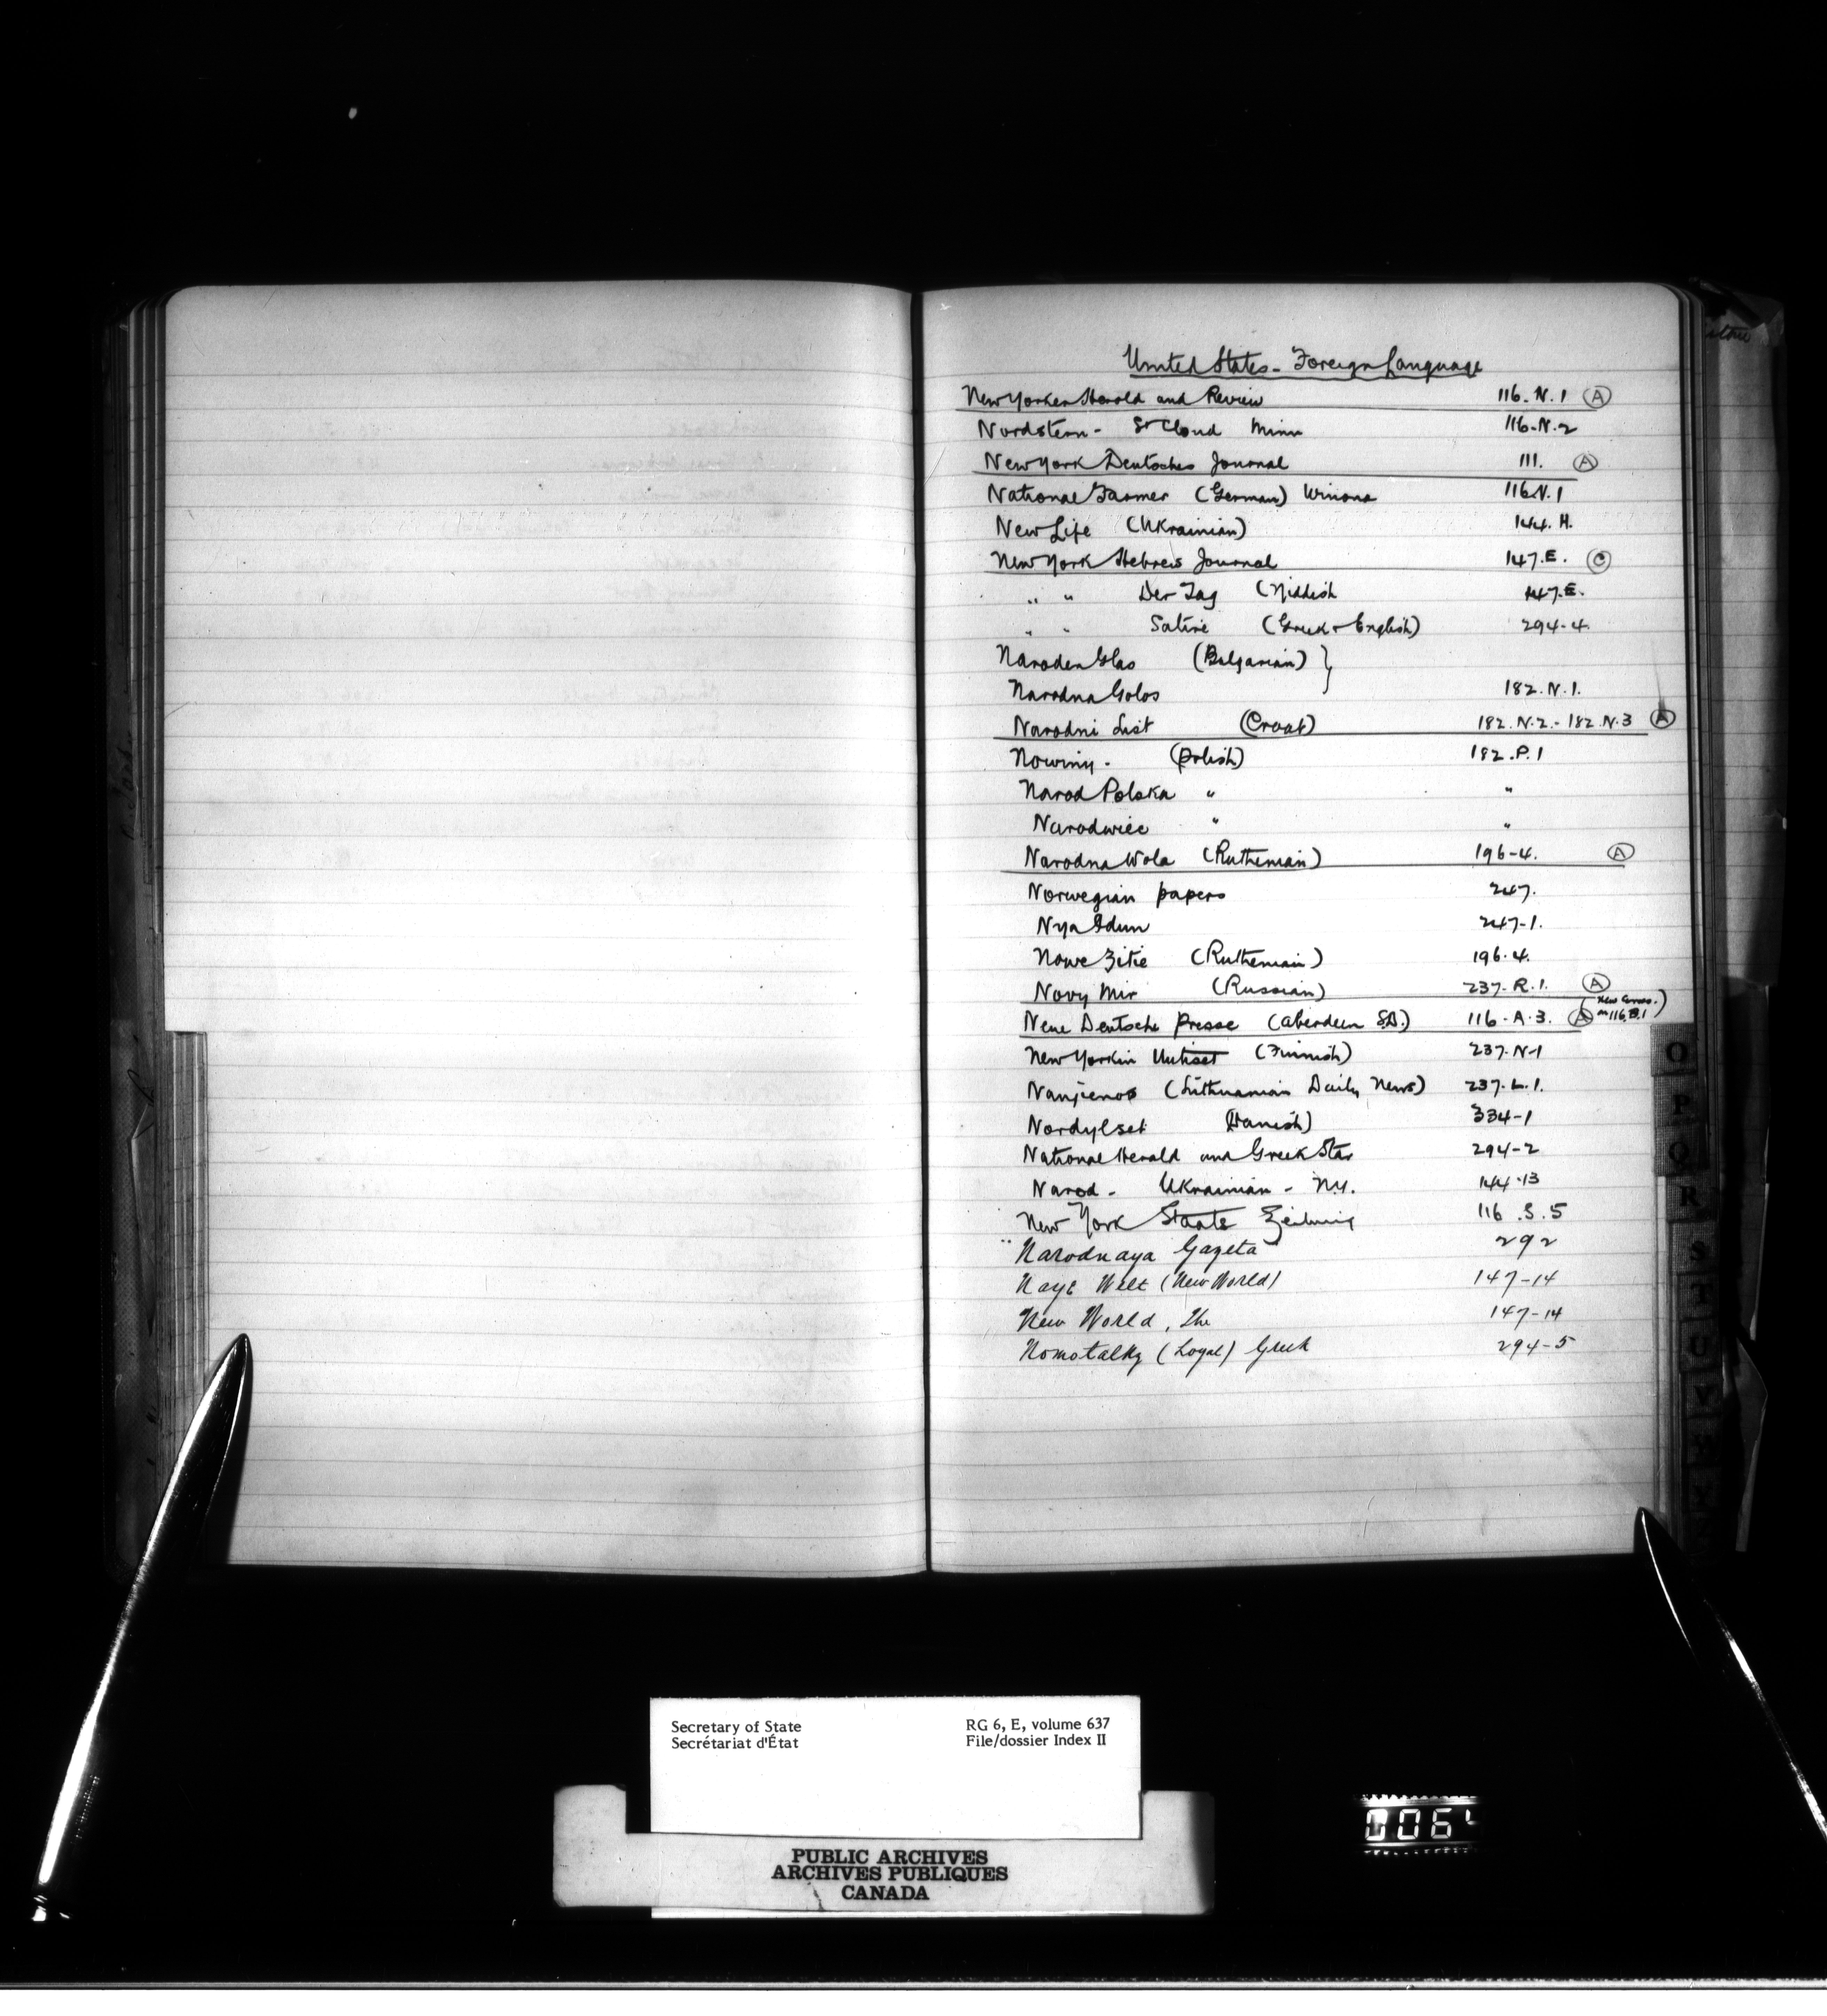 United States - Foreign Language
New Yorker Herold and Review 116. N. 1 (A)
Nordstern - St Cloud Minn 116-N-2
New York Deutsches Journal 111. (A)
National Farmer (German) Winona 116 N. 1
New Life (Ukrainian) 144. H.
New York Hebrew Journal 147. E. (C)
" " Der Tag (Yiddish 147. E.
" " Satire (Greek & English) 294-4.
Naroden Glas (Bulgarian) }
Narodna Golos 182. N. 1.
Narodni List (Croat) 182. N. 2. - 182. N. 3 (A)
Nowiny - (Polish) 182. P. 1
Narod Polska " "
Narodwiec " "
Narodna Wola (Ruthenian) 196-4. (A)
Norwegian papers 247.
Nya Idun 247-1.
Nowe Zitie (Ruthenian) 196-4.
Novy Mir (Russian) 237-R. 1. (A)
Neue Deutsche Presse (Aberdeen S.D.) 116-A-3. (A) (New Corres. in 116.B.1)
New Yorkin Uutiset (Finnish) 237-N-1
Nanjienos (Lithuanian Daily News) 237-L. 1.
Nordylset (Danish) 334-1
National Herald and Greek Star 294-2
Narod - Ukrainian - N.Y. 144-13
New York Staats Zeitung 116. S. 5
Narodnaya Gazeta 292
Naye Welt (New World) 147-14
New World, The 147-14
Nomotalky (Loyal) Greek 294-5
O
P
Q
R
S
T
U
V
Secretary of State RG 6, E, volume 637
Secrétariat d'État File/dossier Index II
PUBLIC ARCHIVES
ARCHIVES PUBLIQUES
CANADA
006